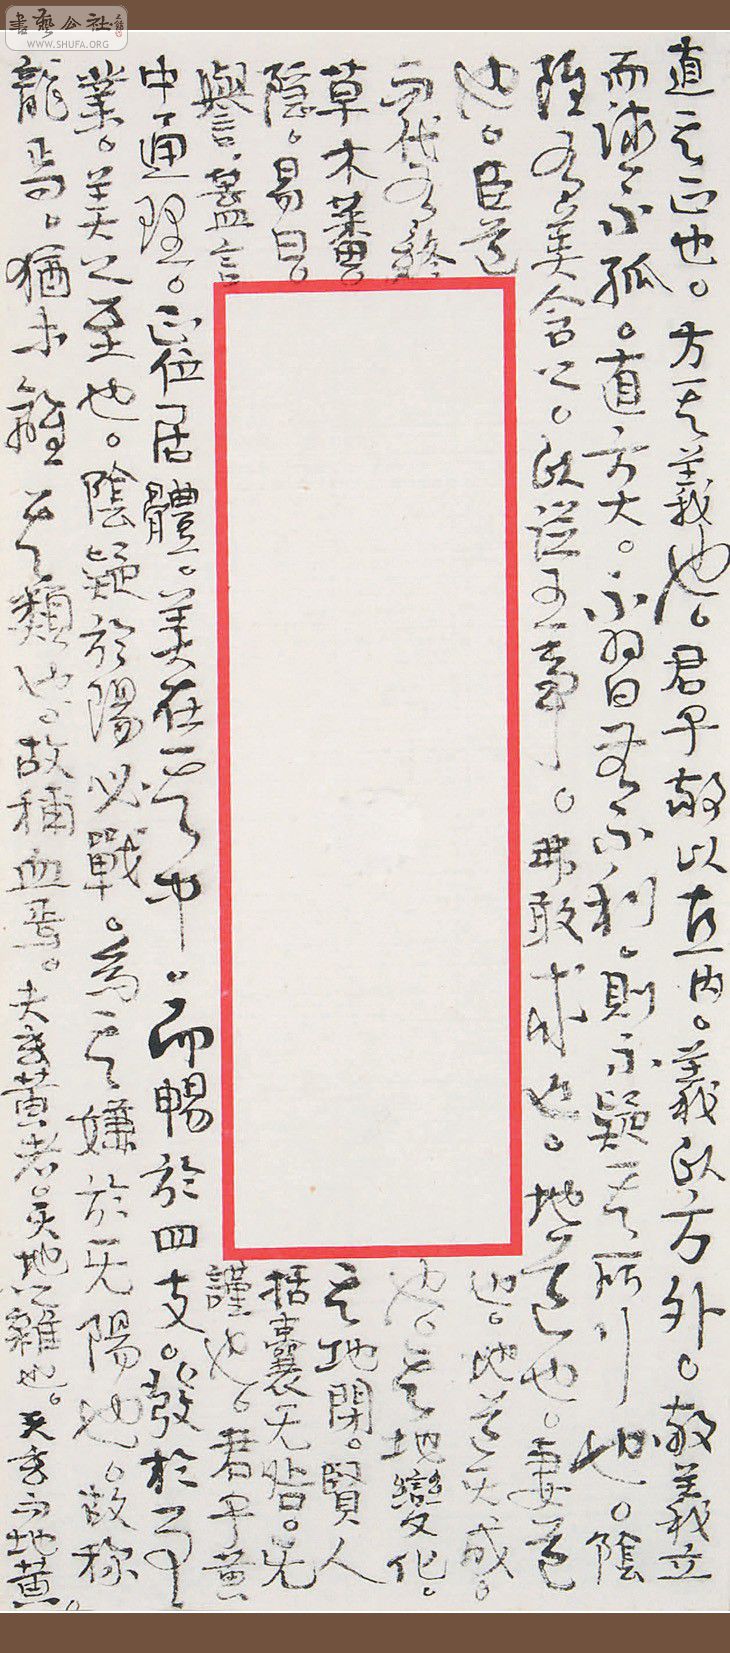 書藝公社
WWW.SHUFA.ORG
直其正也。方其義也。君子敬以直內。義以方外。敬義立
而德不孤。直方大。不習无不利。則不疑其所行也。陰
雖有美含之。以從王事。弗敢成也。地道也。妻道
也。臣道也。地道无成。
而代有終也。天地變化。
草木蕃。天地閉。賢人
隱。易曰。括囊无咎。无
譽。蓋言謹也。君子黃
中通理。正位居體。美在其中。而暢於四支。發於事
業。美之至也。陰疑於陽必戰。為其嫌於无陽也。故称
龍焉。猶未離其類也。故稱血焉。夫玄黃者。天地之雜也。天玄而地黃。